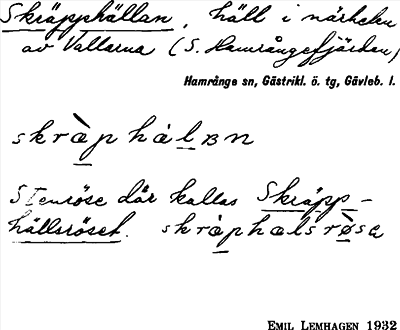 Skräpphällan, häll i närheten
av Vallarna (S. Hamrångefjärden)
Hamrånge sn, Gästrikl. ö. tg, Gävleb. l.
skræ̀p hálʙn
Stenröse där kallas Skräpp-
hällsröset. skræ̀phælsrø̀sa
EMIL LEMHAGEN 1932